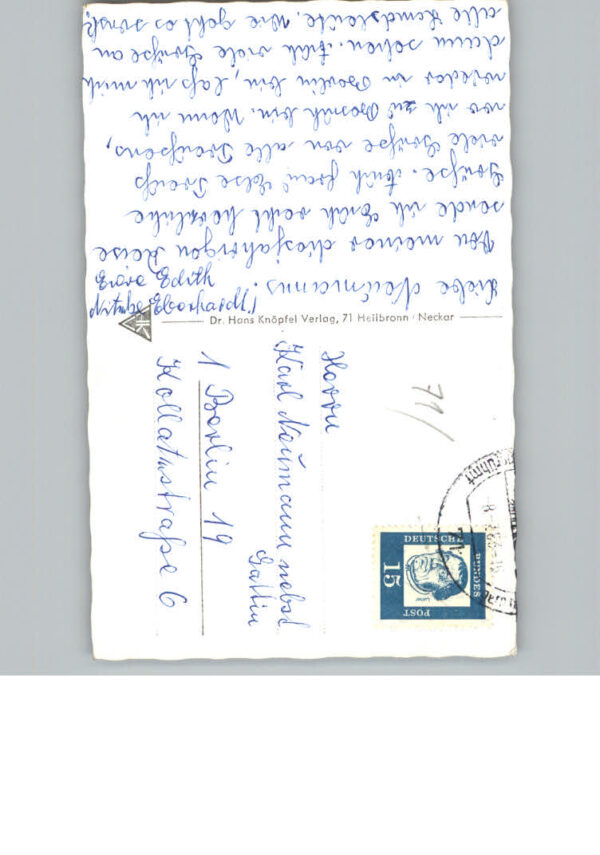 Liebe Neümanns.
Von meiner diesjährigen Reise
sende ich Eüch recht herzliche
Grüße. Aüch Fraü Else Preüß
viele Grüße von alle Preüßens,
wo ich zü Besüch bin. Wenn ich
wieder in Berlin bin, laß ich mich
dann sehen. Aüch viele Grüße an
alle Landsleüte. Wie geht es sonst?
Eüre Edith
Dr. Hans Knöpfel Verlag, 71 Heilbronn / Neckar
Herrn
Karl Neümann nebst
Gattin
1 Berlin 19
Kollatzstraße 6
71/
DEUTSCHE
BUNDES
POST
15
Luther
71